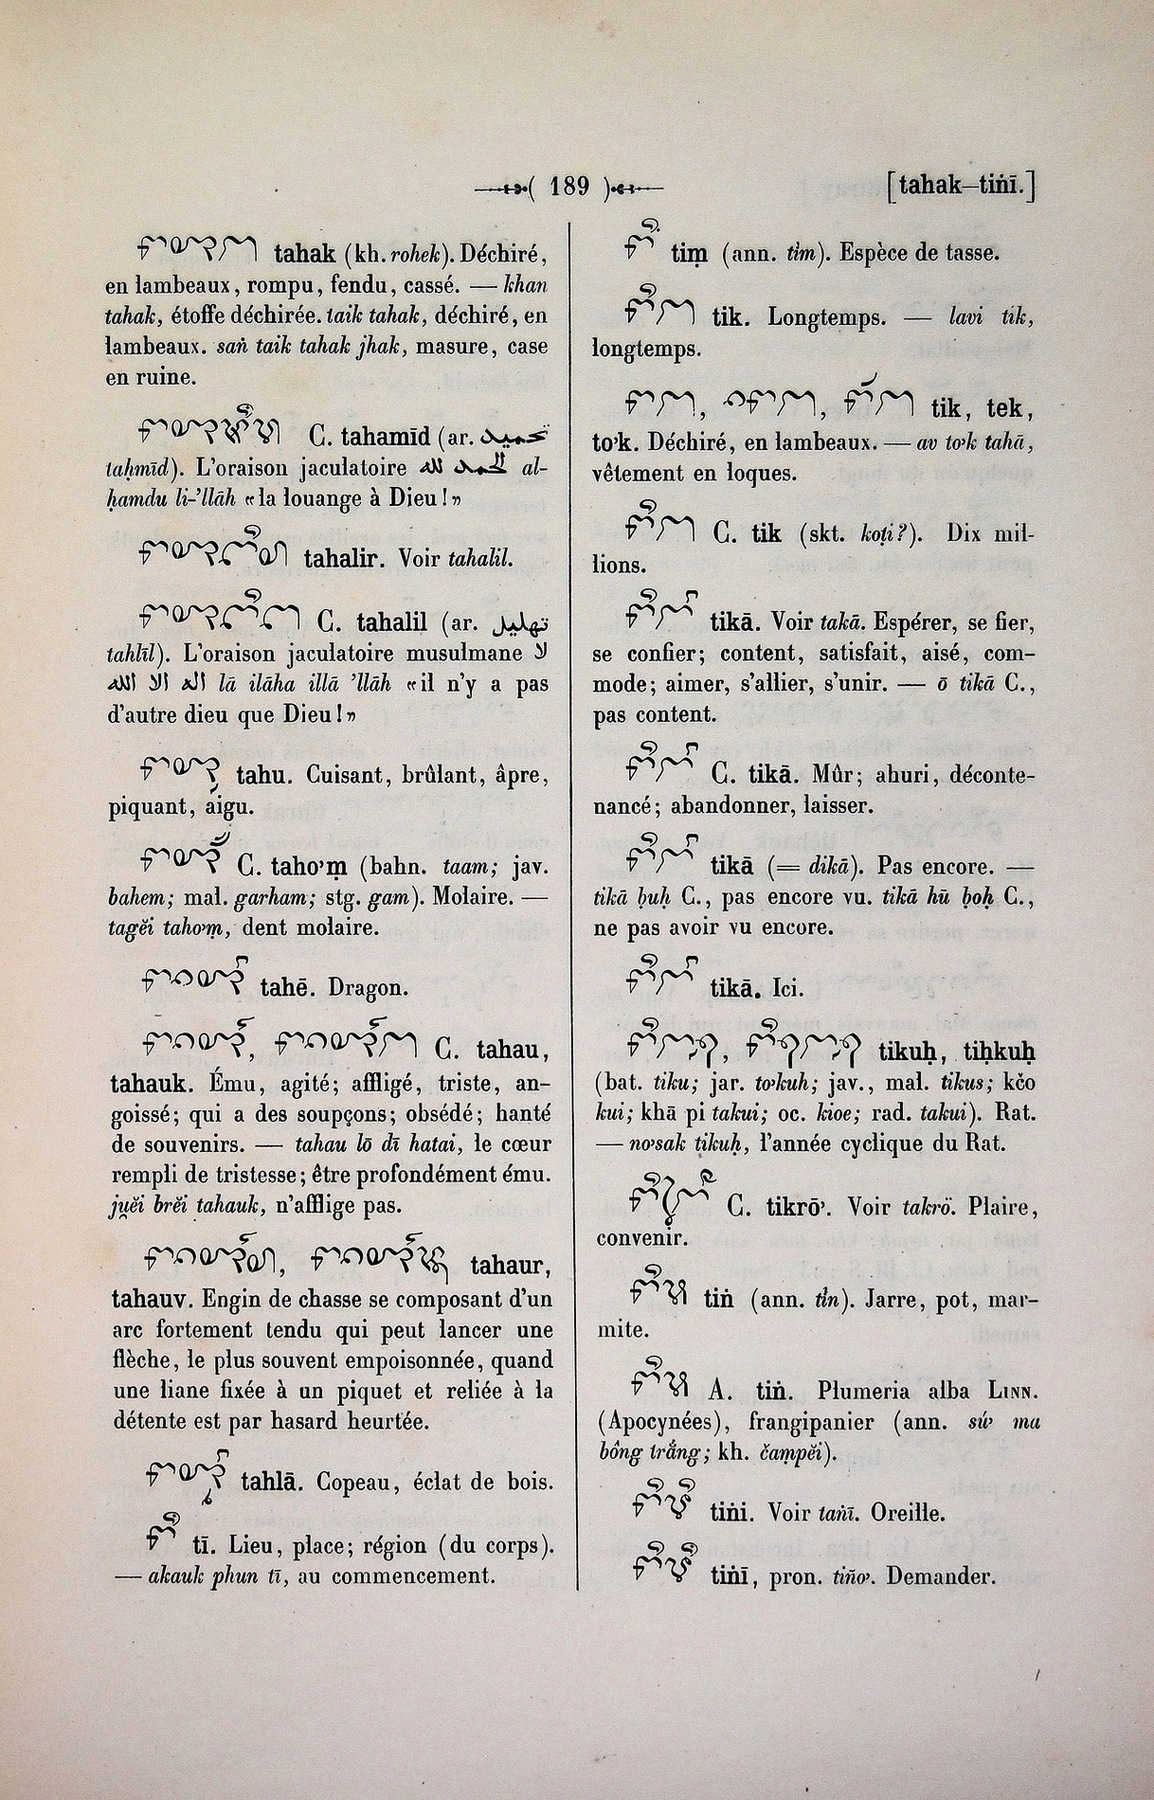 ( 189 )
[tahak–tiṅī.]
tahak (kh. rohek). Déchiré,
en lambeaux, rompu, fendu, cassé. — khan
tahak, étoffe déchirée. taik tahak, déchiré, en
lambeaux. saṅ taik tahak jhak, masure, case
en ruine.
C. tahamīd (ar. تحميد
taḥmīd). L'oraison jaculatoire الحمد لله al-
ḥamdu li-'llāh «la louange à Dieu!»
tahalir. Voir tahalil.
C. tahalil (ar. تهليل
tahlīl). L'oraison jaculatoire musulmane لا
اله الا الله lā ilāha illā 'llāh «il n'y a pas
d'autre dieu que Dieu!»
tahu. Cuisant, brûlant, âpre,
piquant, aigu.
C. taho'ṃ (bahn. taam; jav.
bahem; mal. garham; stg. gam). Molaire. —
tagĕi taho'ṃ, dent molaire.
tahē. Dragon.
C. tahau,
tahauk. Ému, agité; affligé, triste, an-
goissé; qui a des soupçons; obsédé; hanté
de souvenirs. — tahau lō dī hatai, le cœur
rempli de tristesse; être profondément ému.
juĕi brĕi tahauk, n'afflige pas.
tahaur,
tahauv. Engin de chasse se composant d'un
arc fortement tendu qui peut lancer une
flèche, le plus souvent empoisonnée, quand
une liane fixée à un piquet et reliée à la
détente est par hasard heurtée.
tahlā. Copeau, éclat de bois.
tī. Lieu, place; région (du corps).
— akauk phun tī, au commencement.
tiṃ (ann. tìm). Espèce de tasse.
tik. Longtemps. — lavi tik,
longtemps.
tik, tek,
to'k. Déchiré, en lambeaux. — av to'k tahā,
vêtement en loques.
C. tik (skt. koṭi?). Dix mil-
lions.
tikā. Voir takā. Espérer, se fier,
se confier; content, satisfait, aisé, com-
mode; aimer, s'allier, s'unir. — ō tikā C.,
pas content.
C. tikā. Mûr; ahuri, déconte-
nancé; abandonner, laisser.
tikā (= dikā). Pas encore. —
tikā ḅuḥ C., pas encore vu. tikā hū ḅoḥ C.,
ne pas avoir vu encore.
tikā. Ici.
tikuḥ, tiḥkuḥ
(bat. tiku; jar. to'kuh; jav., mal. tikus; kčo
kui; khā pi takui; oc. kioe; rad. takui). Rat.
— no'sak tikuḥ, l'année cyclique du Rat.
C. tikrō'. Voir takrö. Plaire,
convenir.
tiṅ (ann. tỉn). Jarre, pot, mar-
mite.
A. tiṅ. Plumeria alba Linn.
(Apocynées), frangipanier (ann. sứ ma
bông trắng; kh. čaṃpĕi).
tiṅi. Voir taṅī. Oreille.
tiṅī, pron. tiño'. Demander.